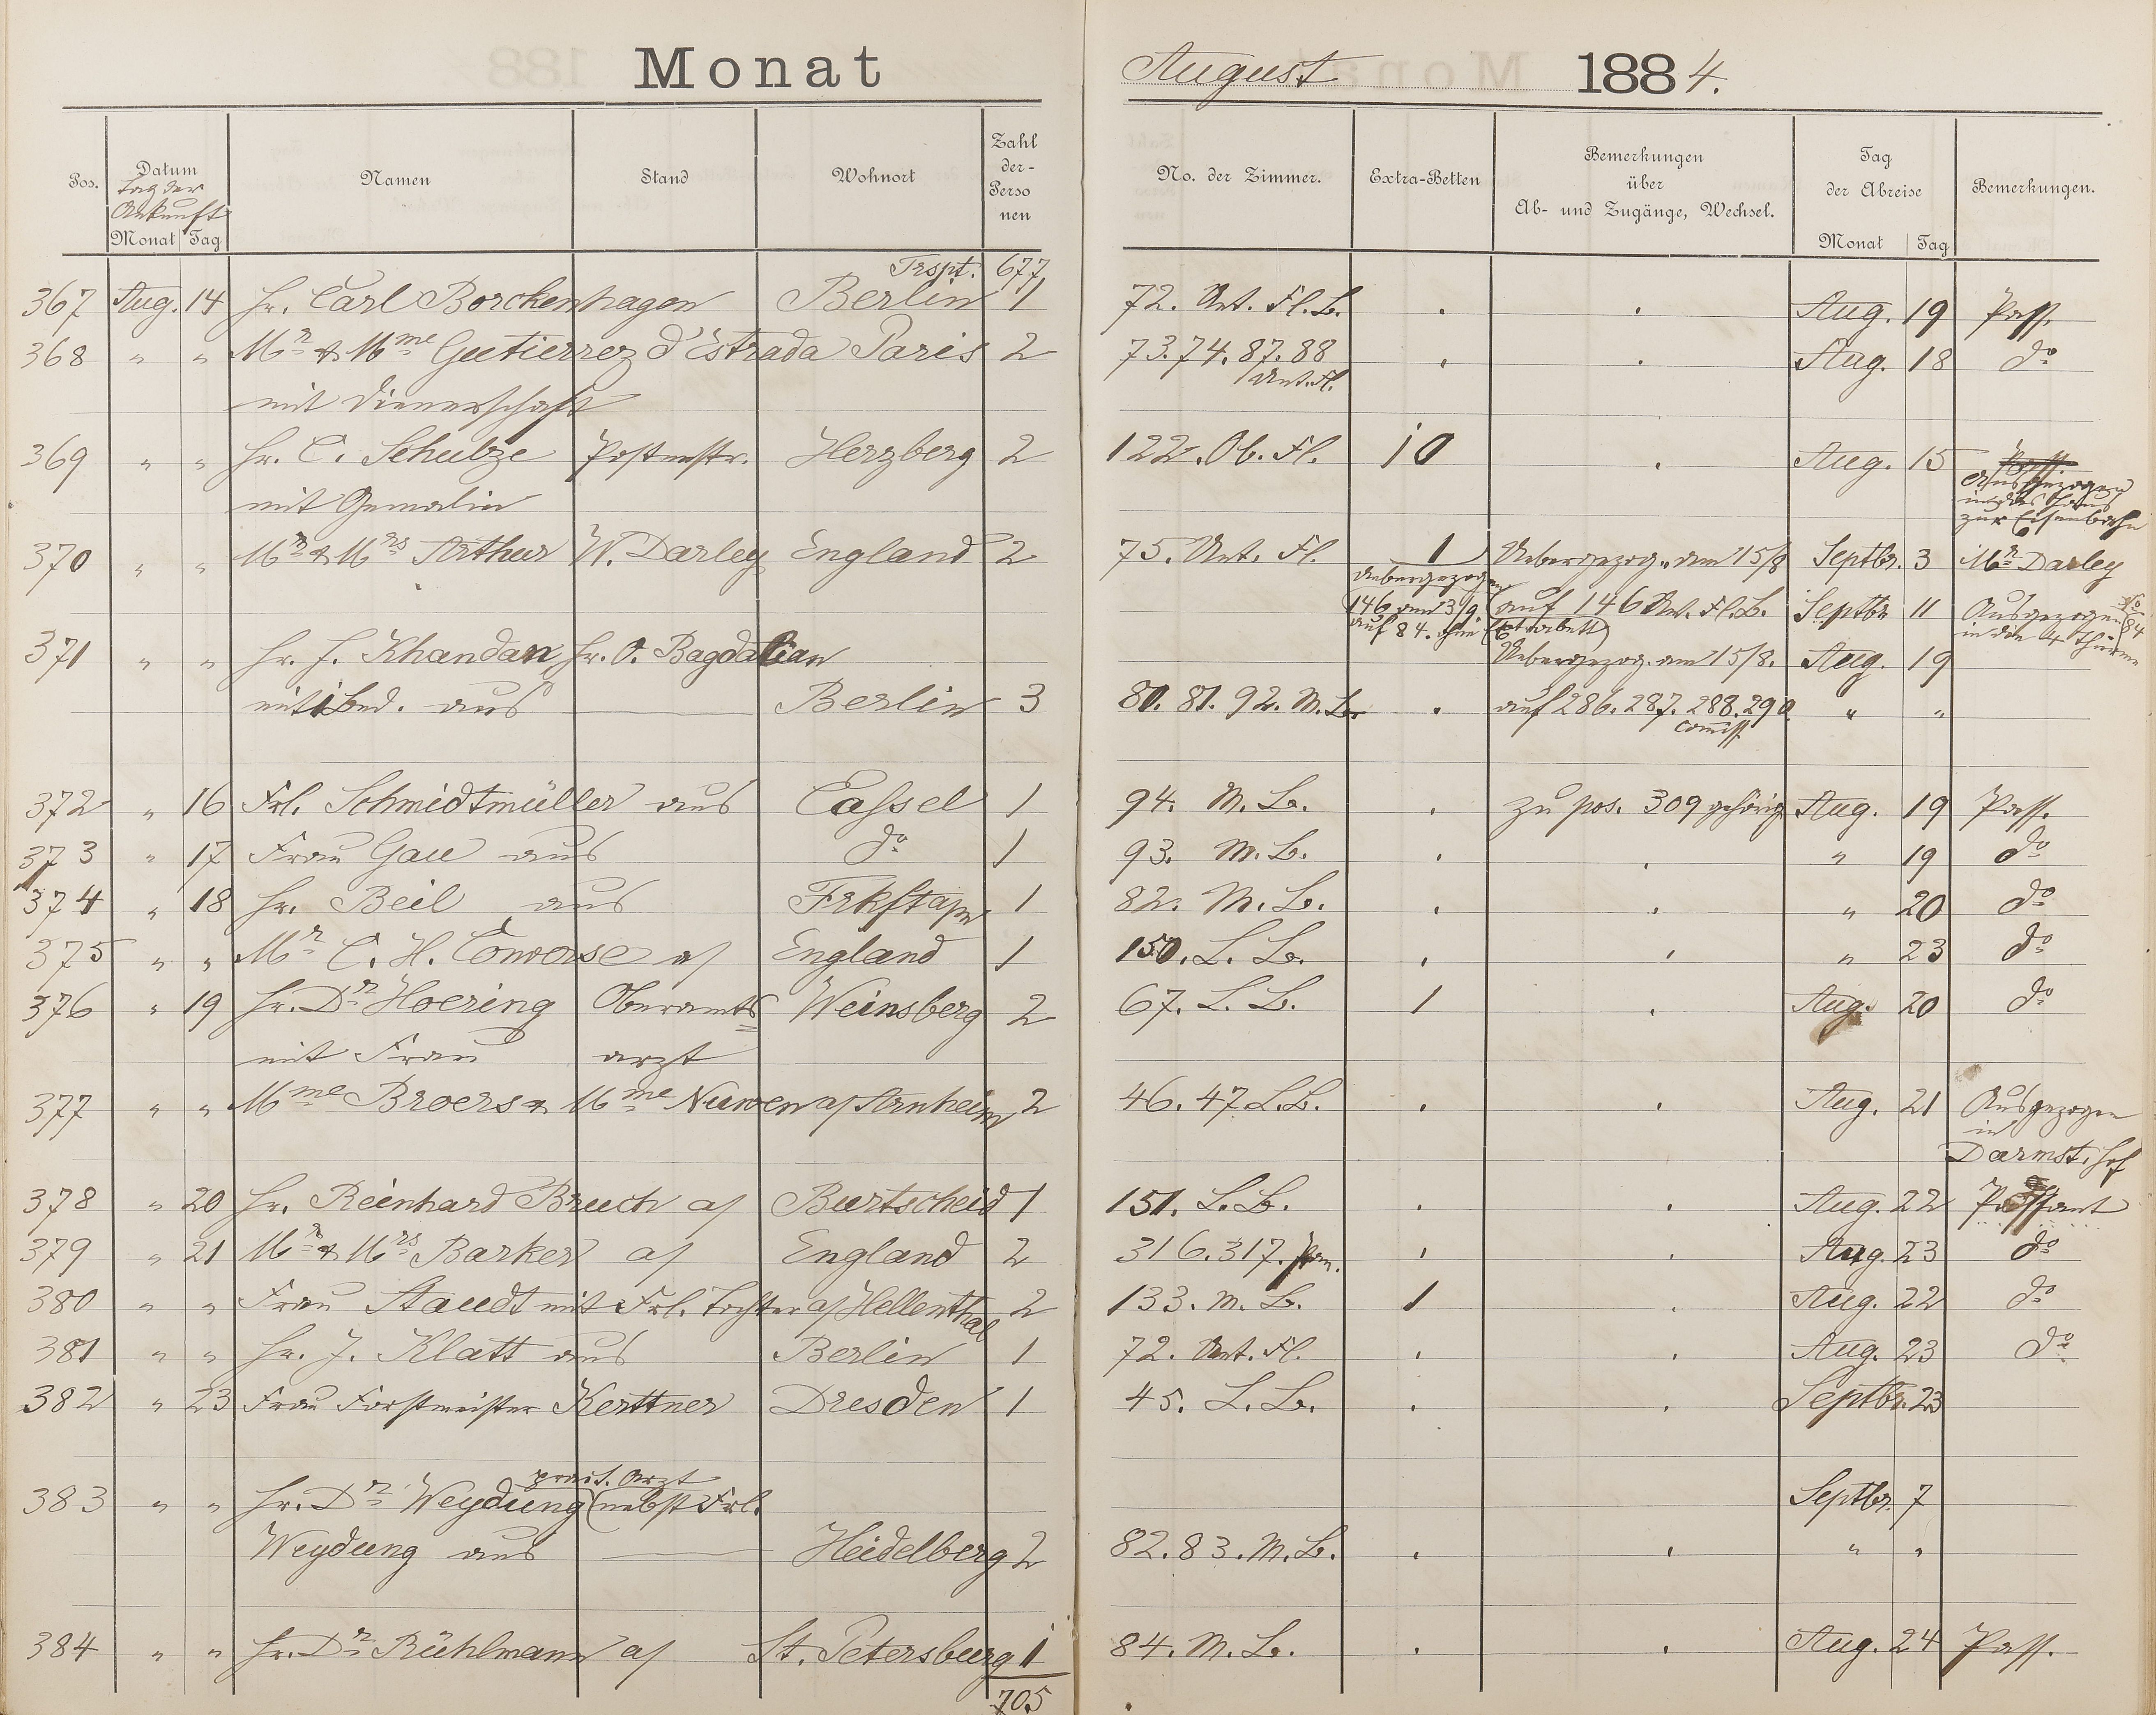 Monat
August 1884.
Pos. Datum Namen Stand Wohnort Zahl der-Perso nen No. der Zimmer. Extra-Betten Bemerkungen über Ab- und Zugänge, Wechsel. Tag der Abreise Bemerkungen.
Tag der
Ankunft
Monat Tag Monat Tag
Trspt. 677
367 Aug. 14 Hr. Carl Borckenhagen Berlin 1 72. Unt. Fl. B. Aug. 19 Pass.
368 " " Mr & Mme Gutierrez d'Estrada Paris 2 73. 74. 87. 88 Aug. 18 do
Unt. Fl.
mit Dienerschaft
369 " " Hr. C. Schulze Postmstr. Herzberg 2 122. Ob. Fl. Aug. 15 Pass.
mit Gemalin Ausgezogen
in das Haus
zur Eisenbahn
370 " " Mr & Mrs Arthur W. Darley England 2 75. Unt. Fl. 1 Uebergezog. am 15/8 Septbr. 3 Mr Darley
Uebergezogen
146 am 3/9 auf 146 Unt. Fl. B. Septbr 11 Ausgezogen No 84
auf 84. ohne Extrabett in die 4 Thürme
371 " " Hr. J. Khandan Hr. O. Bagdalian Uebergezog. am 15/8. Aug. 19
mit 1 Bed. aus Berlin 3 80. 81. 92. M. B. auf 286. 287. 288. 290 " "
Commiss.
372 " 16 Frl. Schmidtmüller aus Cassel 1 94. M. B. zu pos. 309 gehörig Aug. 19 Pass.
373 " 17 Frau Gau aus do 1 93. M. B. " 19 do
374 " 18 Hr. Beil aus Frkft a/m 1 82. M. B. " 20 do
375 " " Mr C. H. Converse a/ England 1 150. L. B. " 23 do
376 " 19 Hr. Dr Hoering Oberamts Weinsberg 2 67. L. B. 1 Aug. 20 do
mit Frau arzt
377 " " Mme Broers & Mme Nuwen a/ Arnheim 2 46. 47 L. B. Aug. 21 Ausgezogen
in
Darmst. Hof
378 " 20 Hr. Reinhard Bruch a/ Burtscheid 1 151. L. B. Aug. 22 Passant
379 " 21 Mr & Mrs Barker a/ England 2 316. 317. Aug. 23 do
380 " " Frau Staudt mit Frl. Tochter a/ Hellenthal 2 133. M. B. 1 Aug. 22 do
381 " " Hr. J. Klatt aus Berlin 1 72. Unt. Fl. Aug. 23 do
382 " 23 Frau Forstmeister Kerttner Dresden 1 45. L. B. Septbr. 23
pract. Arzt
383 " " Hr. Dr Weydung (nebst Frl. Septbr. 7
Weydung aus Heidelberg 2 82. 83. M. B. " "
384 " " Hr. Dr Rühlmann a/ St. Petersburg 1 84. M. B. Aug. 24 Pass.
705